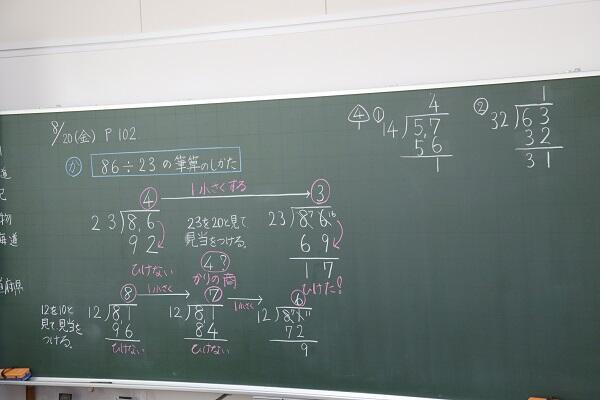 8/20(金) P102
か 86÷23の筆算のしかた
4 1小さくする 3
23)8,6
92
ひけない
23を20と見て
見当をつける。
4?
かりの商
23)8⁷6¹⁶
69
17
ひけた!
12を10と
見て見当を
つける。
8 1小さく 7 1小さく 6
12)8,1
96
ひけない
12)8,1
84
ひけない
12)8⁷1¹¹
72
9
4 ①
4
14)5,7
56
1
②
1
32)63
32
31
物
海道
道府県